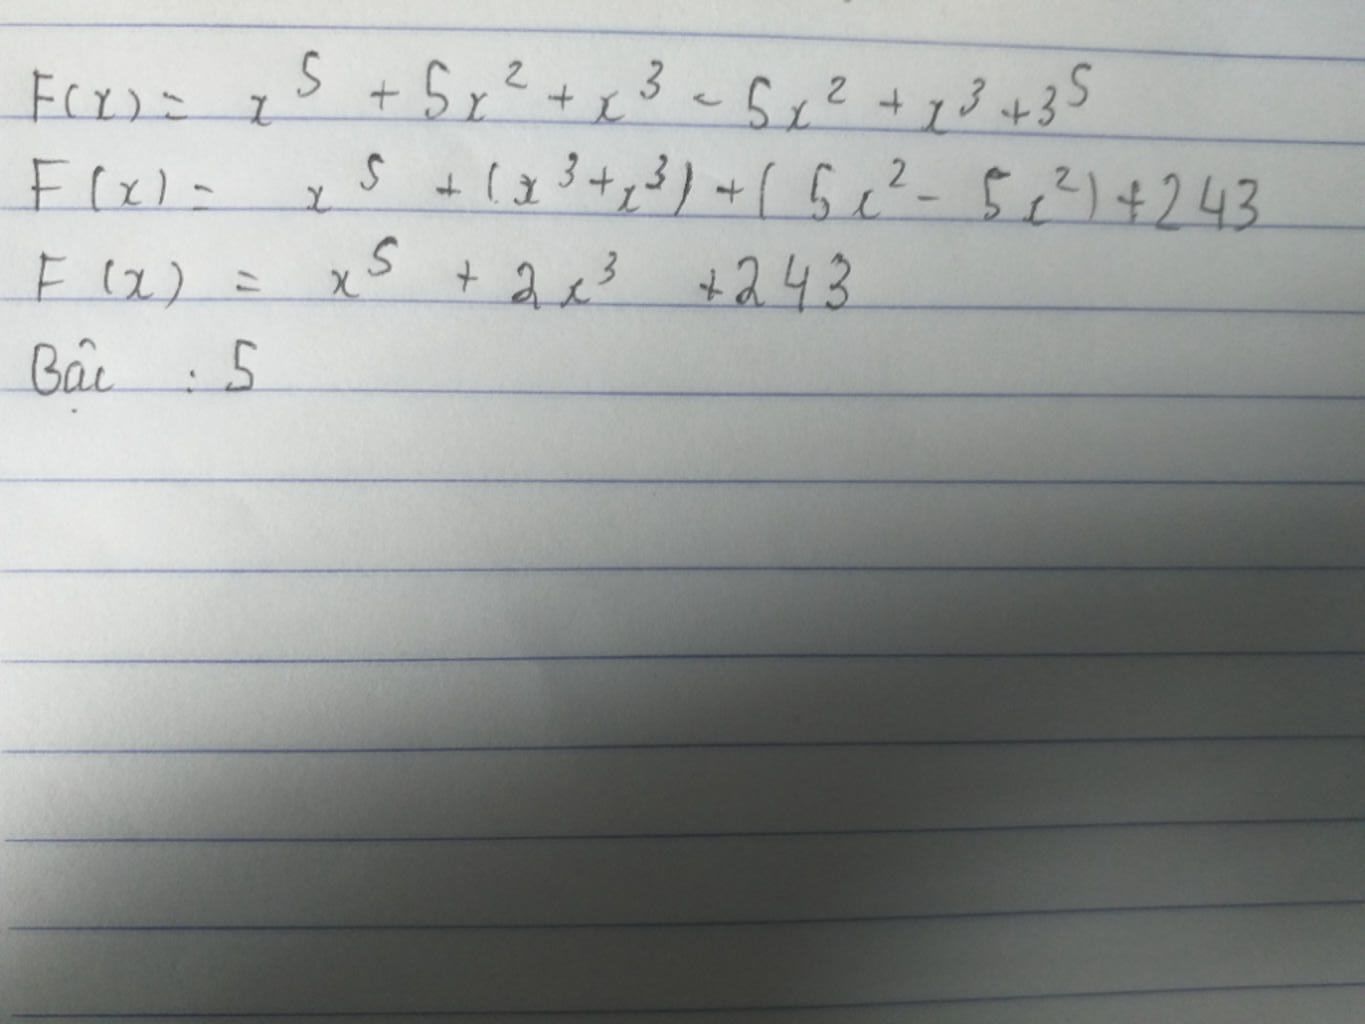 F(x) = x⁵ + 5x² + x³ - 5x² + x³ + 3⁵
F(x) = x⁵ + (x³ + x³) + (5x² - 5x²) + 243
F(x) = x⁵ + 2x³ + 243
Bậc : 5